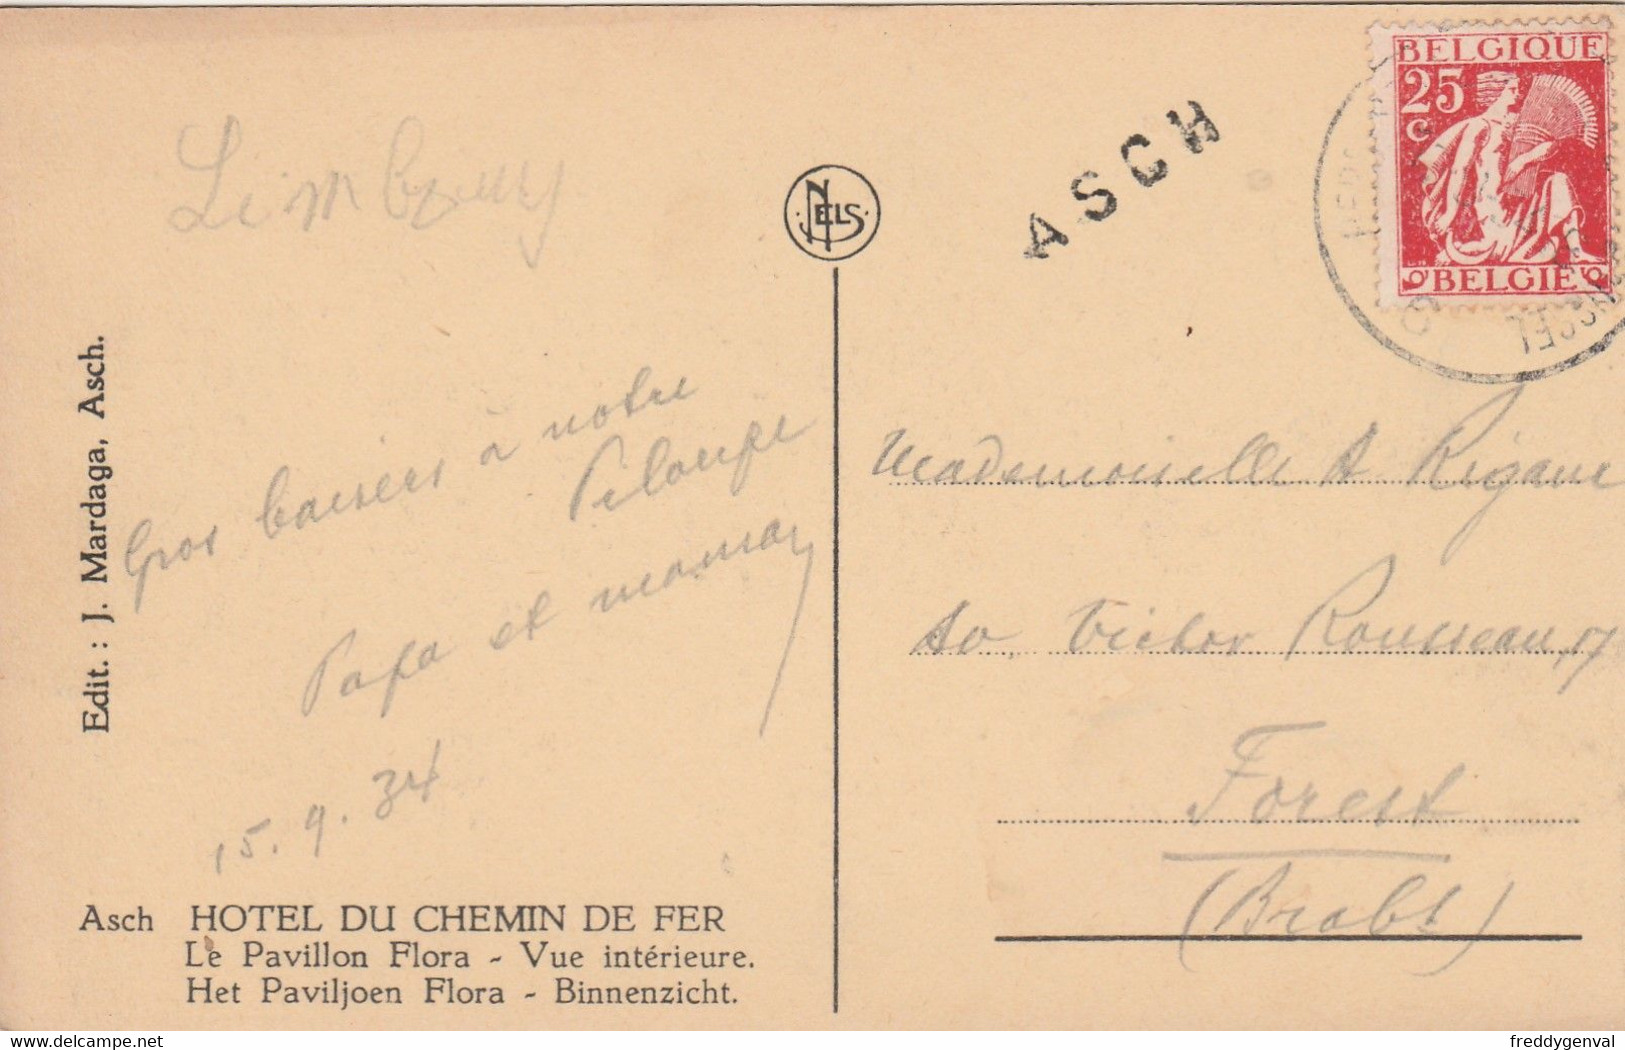 Limbourg
NELS
ASCH
BELGIQUE
25
C
BELGIË
Edit. : J. Mardaga, Asch.
Gros baisers à notre
Piloupe
Papa et maman
15.9.34
Mademoiselle A Rigaux
Av. Victor Rousseau, 17
Forest
(Brabt)
Asch HOTEL DU CHEMIN DE FER
Le Pavillon Flora - Vue intérieure.
Het Paviljoen Flora - Binnenzicht.
delcampe.net
freddygenval